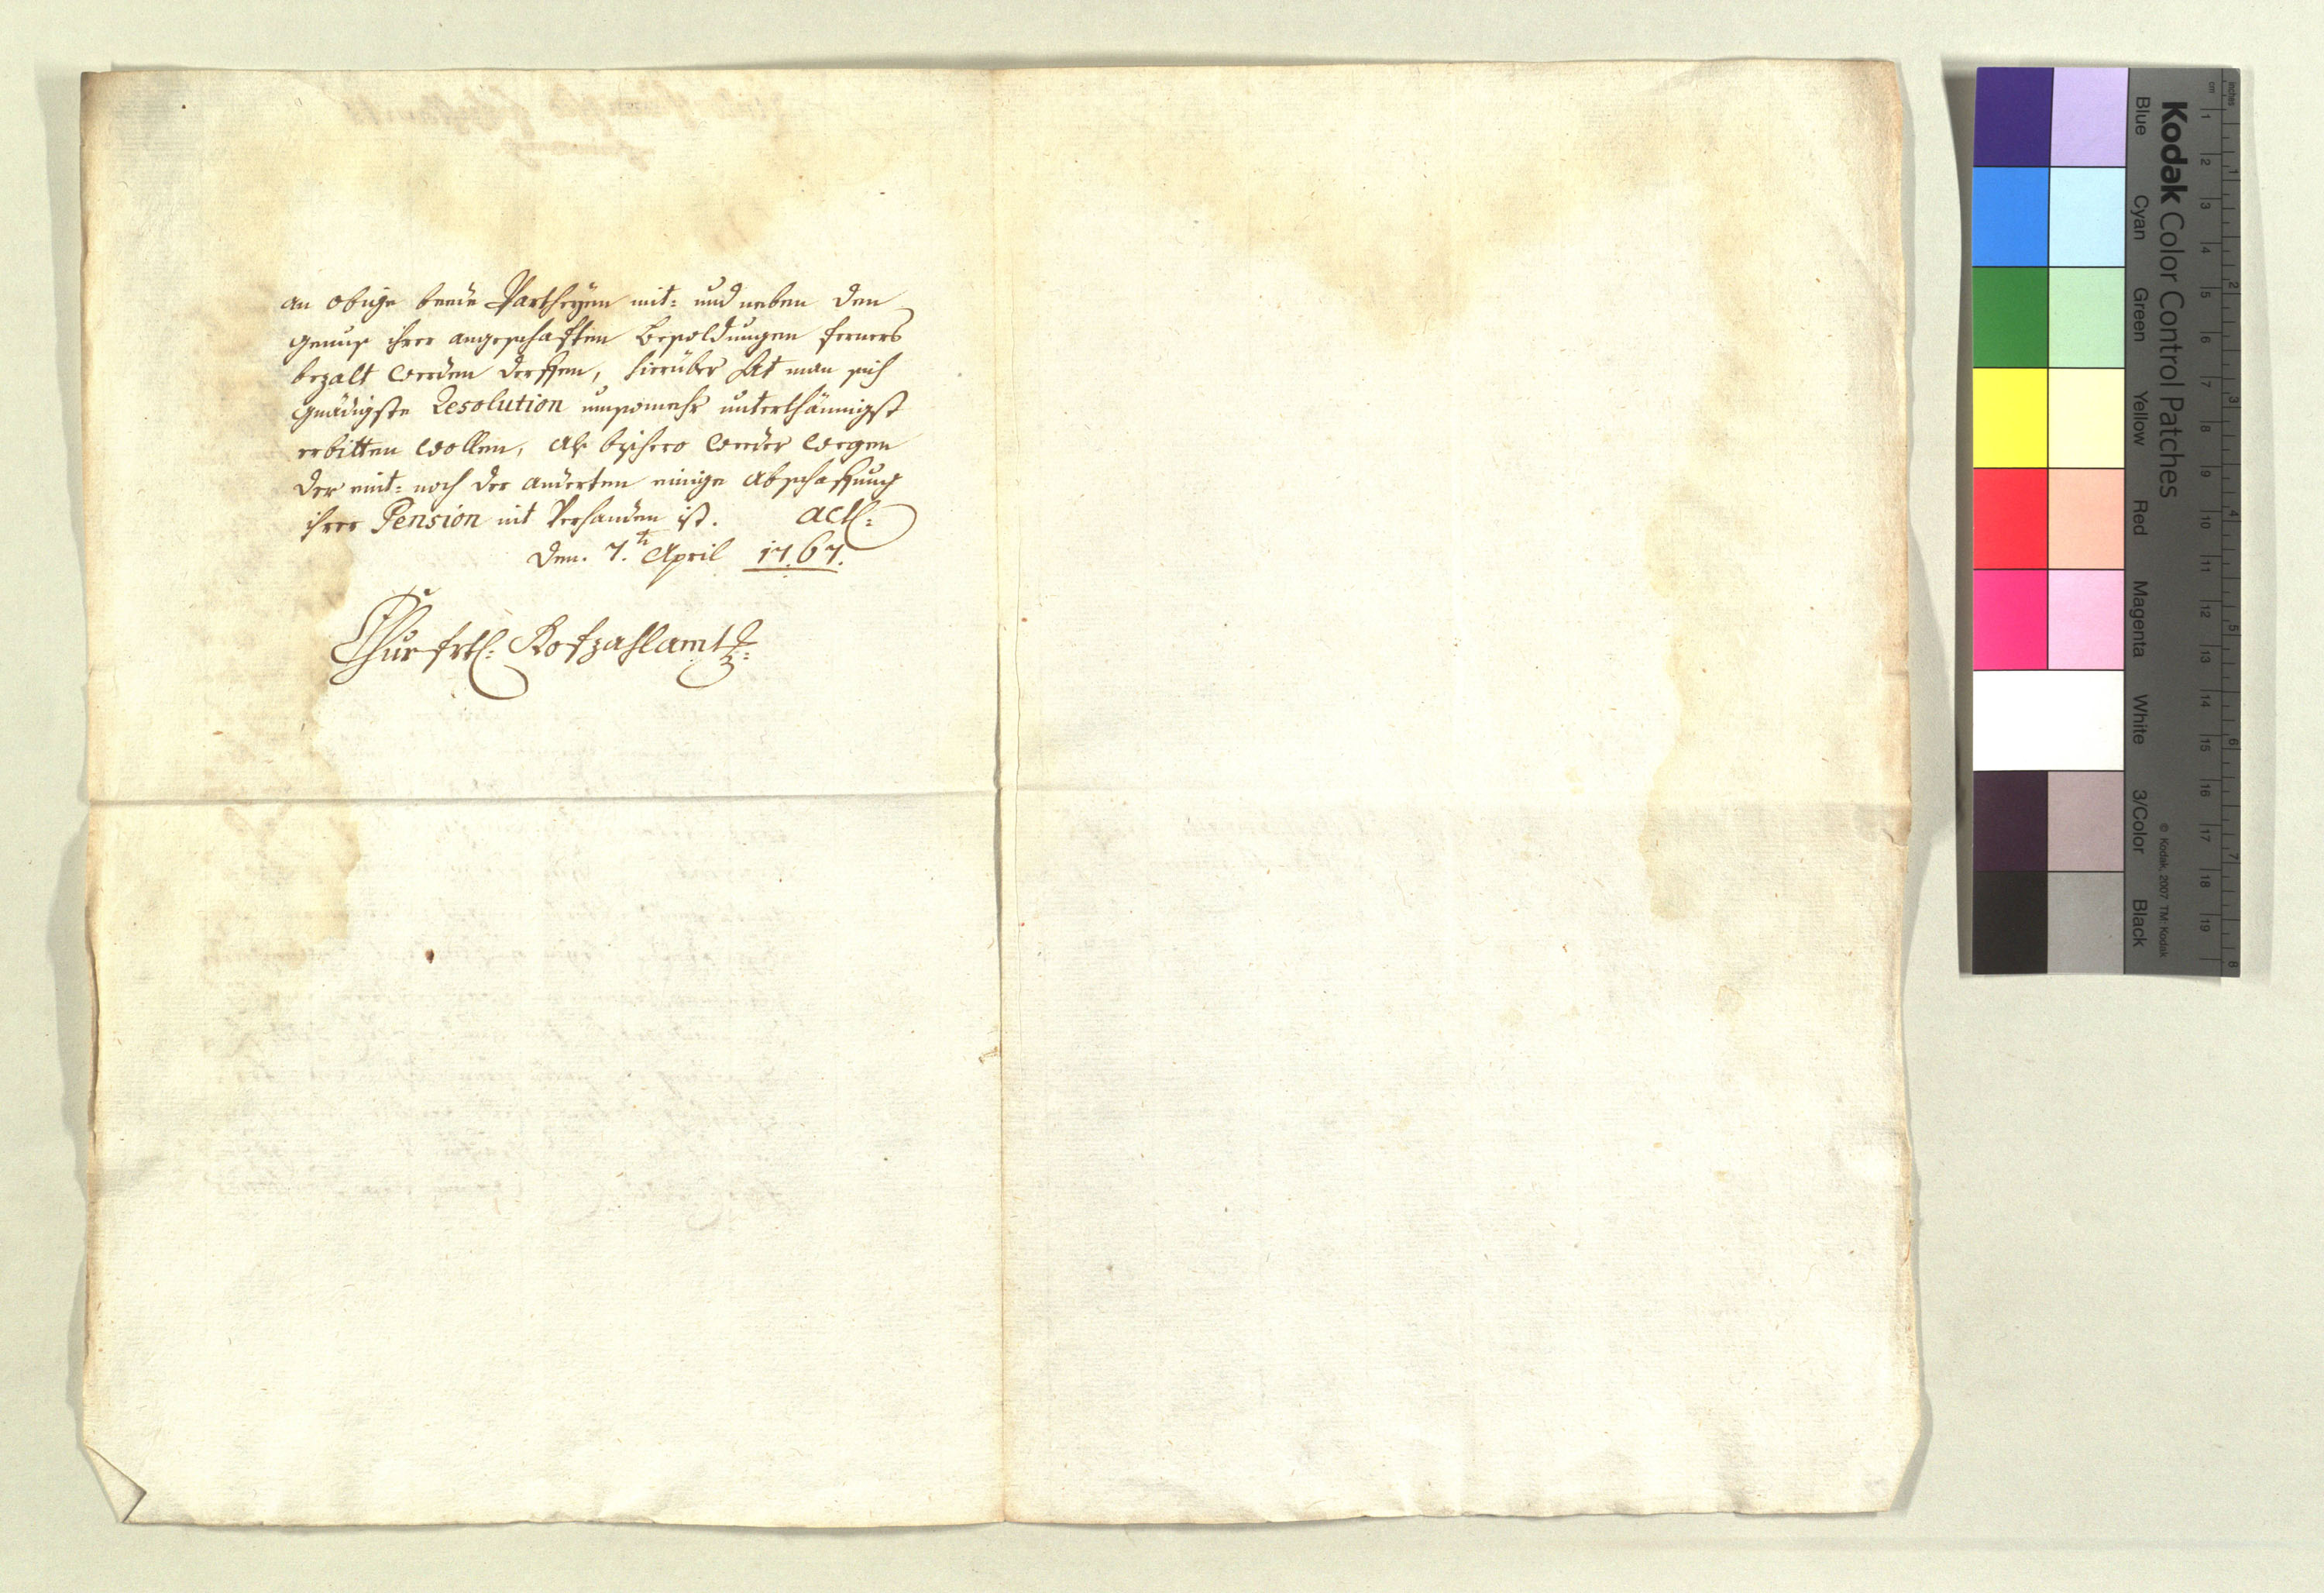 an obige beede Partheyen mit: und neben den
genuß ihrer angeschafften Besoldungen ferners
bezalt werden derffen, hierüber hat man sich
gnädigste Resolution umsomehr unterthännigst
erbitten wollen, als bishero weeder wegen
der eint: noch der anderten einige abschaffung
ihrer Pension nit verhanden ist. Actl:
den. 7.tn April 1767.
Churfrtl: Hofzahlamt
Kodak Color Control Patches
Blue Cyan Green Yellow Red Magenta White 3/Color Black
© Kodak, 2007 TM: Kodak
cm 1 2 3 4 5 6 7 8 9 10 11 12 13 14 15 16 17 18 19
inches 1 2 3 4 5 6 7 8